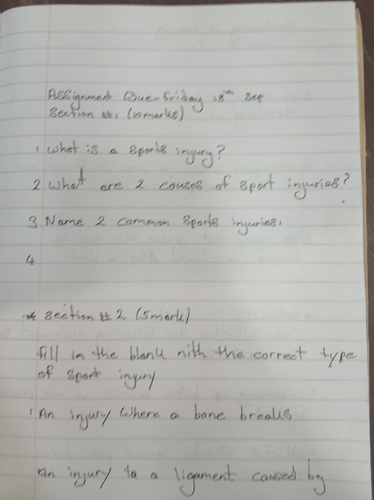 Assignment Due-Friday 18th Sep
Section #1 (10marks)
1 What is a sports injury?
2 What are 2 causes of sport injuries?
3 Name 2 common sports injuries.
4
Section #2 (5mark)
fill in the blank with the correct type
of sport injury
1 An injury where a bone breaks
An injury to a ligament caused by